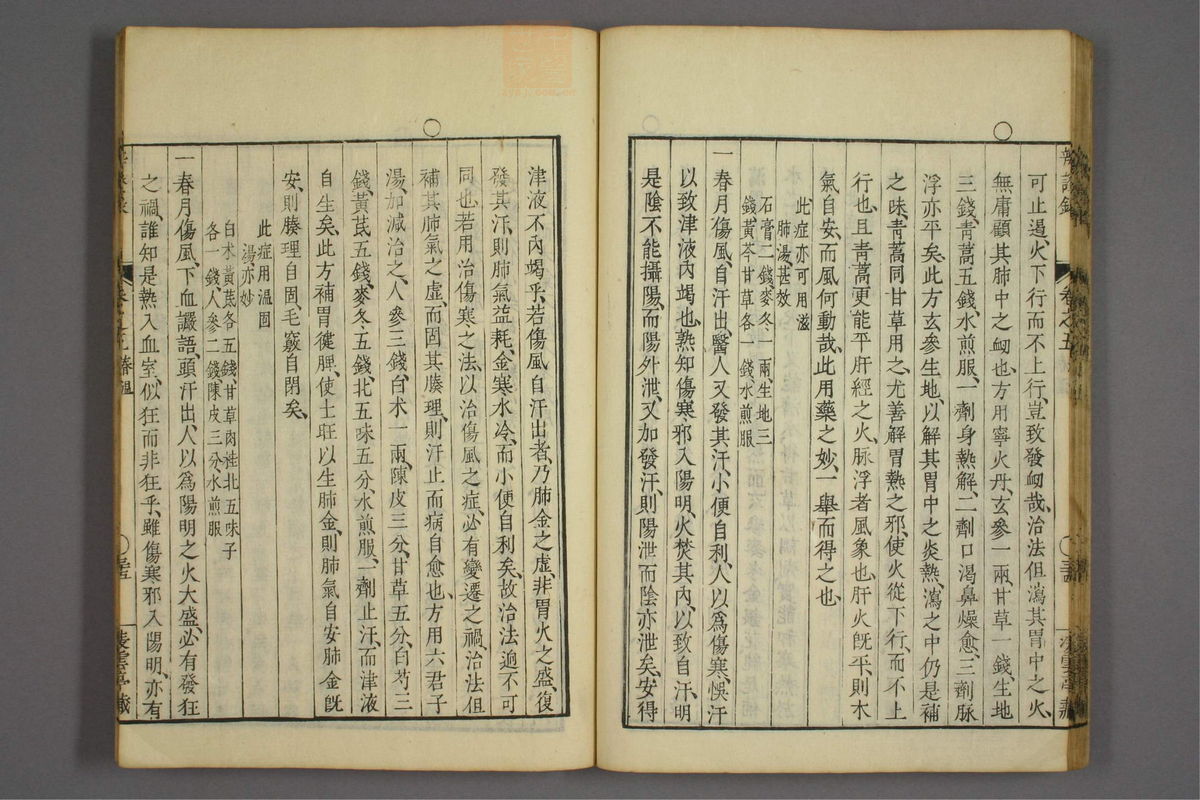 辨證錄 卷之五
可止遏、火下行而不上行、豈致發衂哉、治法但瀉其胃中之火、
無庸顧其肺中之衂也、方用寧火丹、玄參一兩、甘草一錢、生地
三錢、青蒿五錢、水煎服、一劑身熱解、二劑口渴鼻燥愈、三劑脉
浮亦平矣、此方玄參生地、以解其胃中之炎熱、瀉之中仍是補
之味、青蒿同甘草用之、尤善解胃熱之邪、使火從下行、而不上
行也、且青蒿更能平肝經之火、脉浮者風象也、肝火旣平、則木
氣自安、而風何動哉、此用藥之妙、一舉而得之也、
此症亦可用滋
肺湯、甚效、
石膏二錢、麥冬一兩、生地三
錢、黃芩甘草各一錢、水煎服
一春月傷風、自汗出、醫人又發其汗、小便自利、人以爲傷寒、悞汗
以致津液內竭也、孰知傷寒邪入陽明、火焚其內、以致自汗、明
是陰不能攝陽、而陽外泄、又加發汗、則陽泄而陰亦泄矣、安得
津液不內竭乎、若傷風自汗出者、乃肺金之虛、非胃火之盛、復
發其汗、則肺氣益耗、金寒水冷、而小便自利矣、故治法逈不可
同也、若用治傷寒之法、以治傷風之症、必有變遷之禍、治法但
補其肺氣之虛、而固其腠理、則汗止而病自愈也、方用六君子
湯、加減治之、人參三錢、白术一兩、陳皮三分、甘草五分、白芍三
錢、黃芪五錢、麥冬五錢、北五味五分、水煎服、一劑止汗、而津液
自生矣、此方補胃徤脾、使土旺以生肺金、則肺氣自安、肺金旣
安、則腠理自固、毛竅自閉矣、
此症用溫固
湯亦妙
白术黃芪各五錢、甘草肉桂北五味子
各一錢、人參二錢、陳皮三分、水煎服
一春月傷風、下血讝語、頭汗出、人以爲陽明之火大盛、必有發狂
之禍、誰知是熱入血室、似狂而非狂乎、雖傷寒邪入陽明、亦有